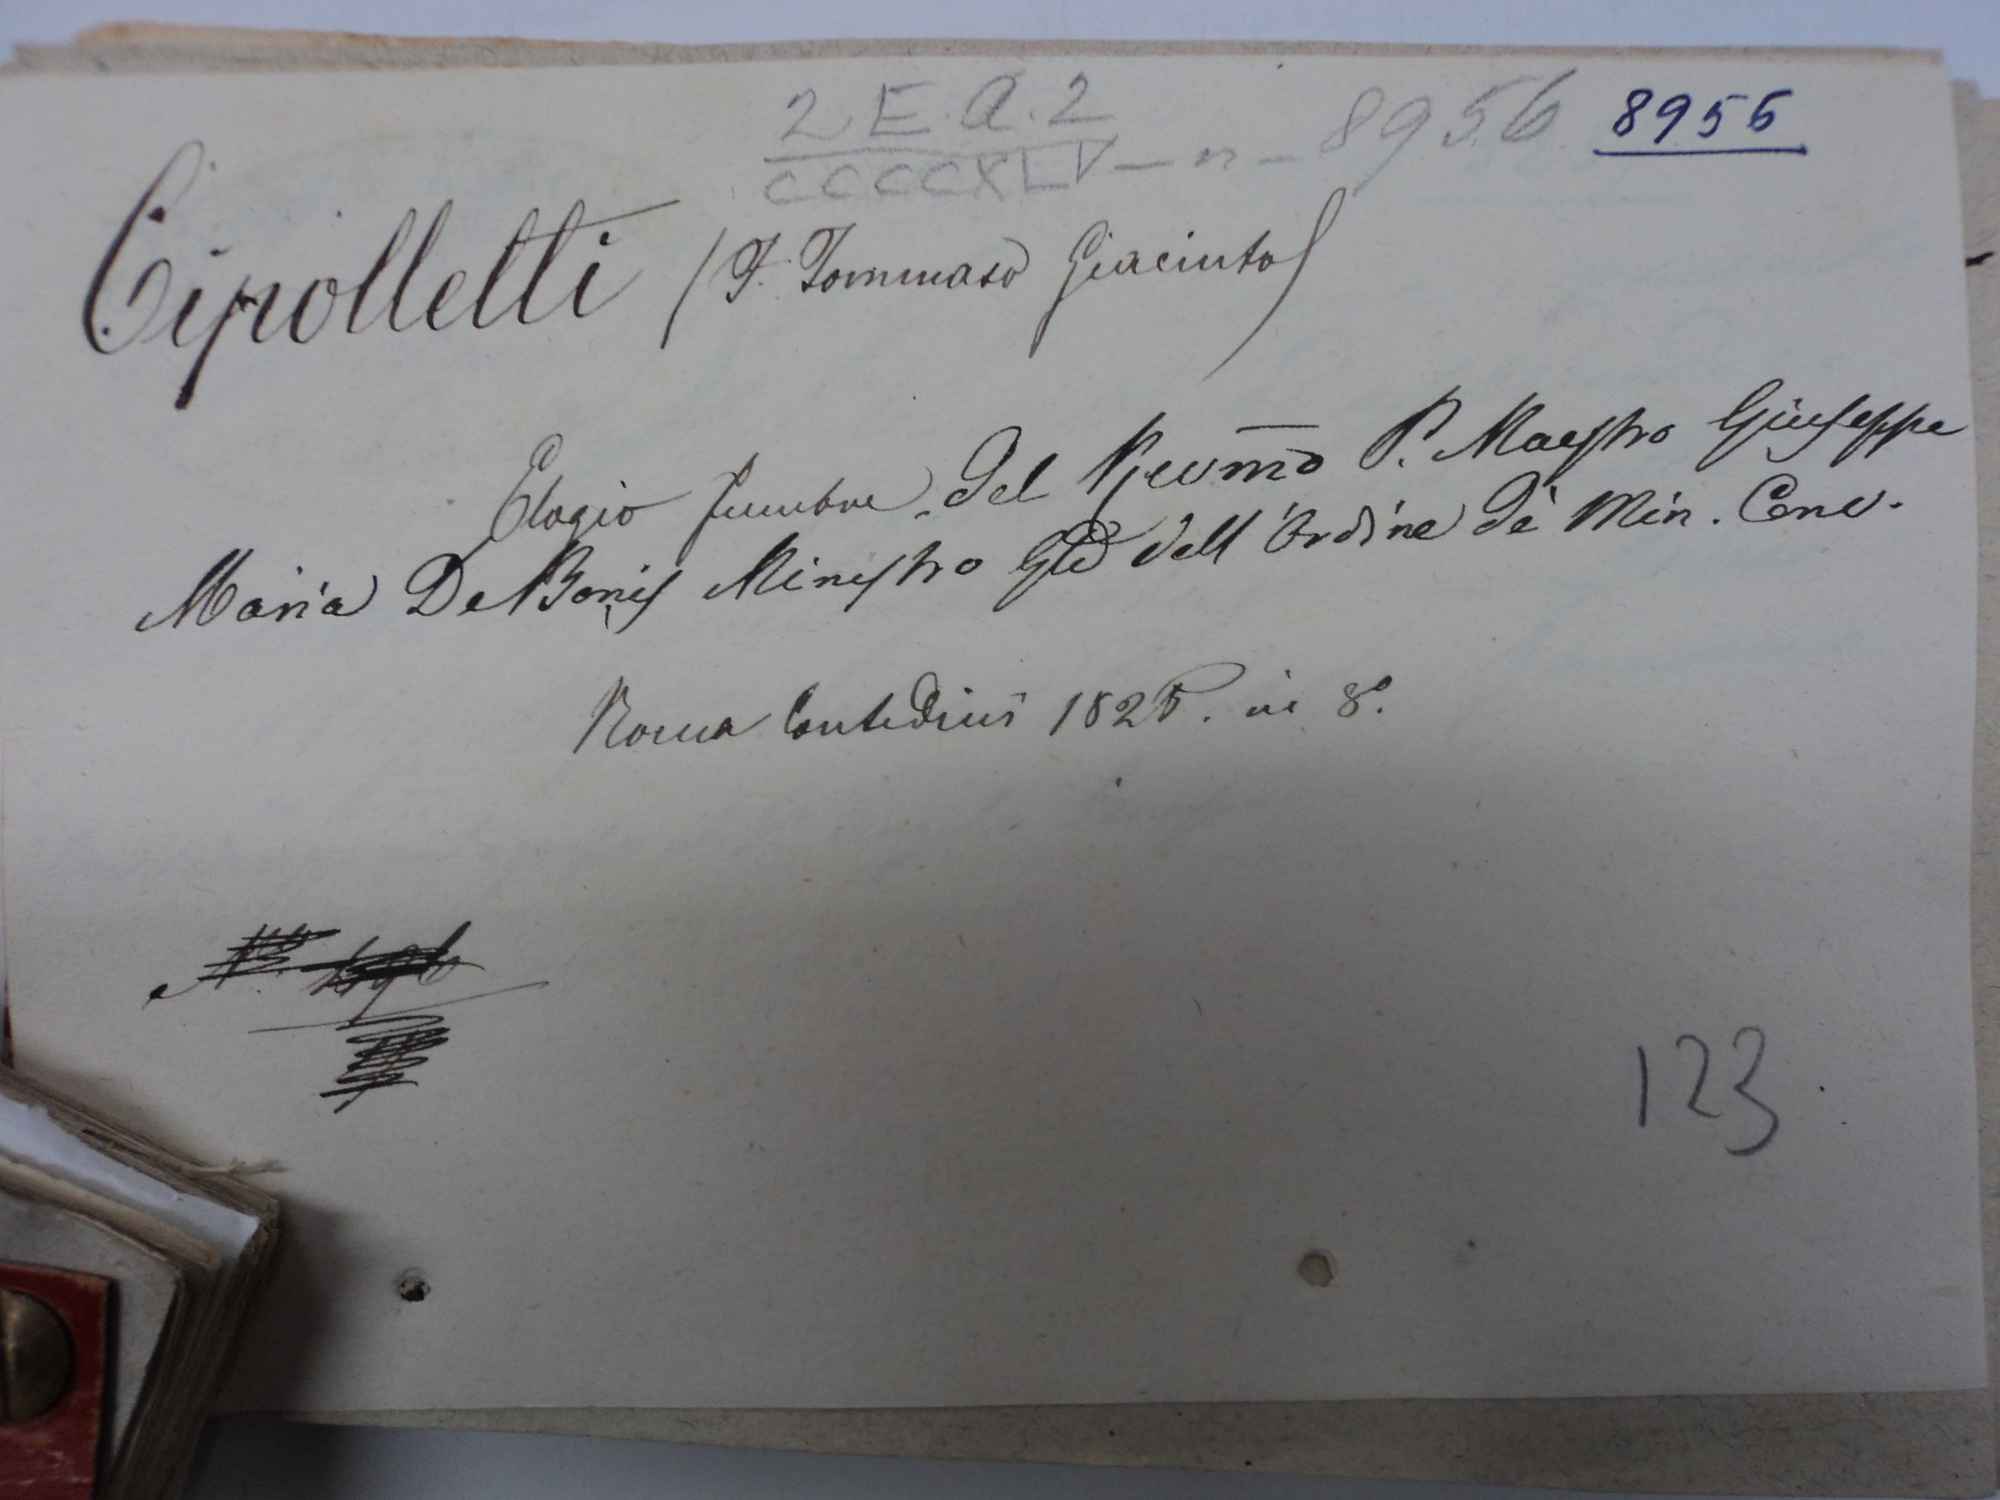 2 E. a. 2 8956
CCCCXLV - n - 8956
Cipolletti (F. Tommaso Giacinto)
Elogio funebre del Revmo P. Maestro Giuseppe
Maria De Bonis Ministro Gle dell'Ordine de' Min. Conv.
Roma Contedini 1825. in 8°.
123